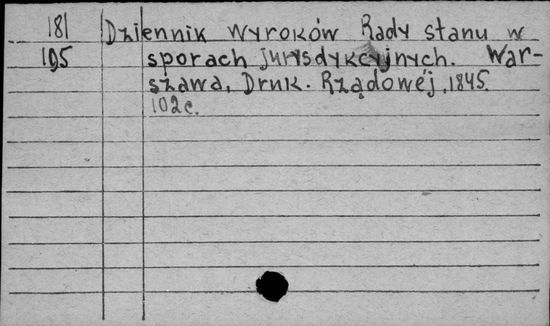 181 Dziennik wyroków Rady stanu w
195 sporach jurysdykcyjnych. War-
szawa, Druk. Rządowéj, 1845.
102 c.